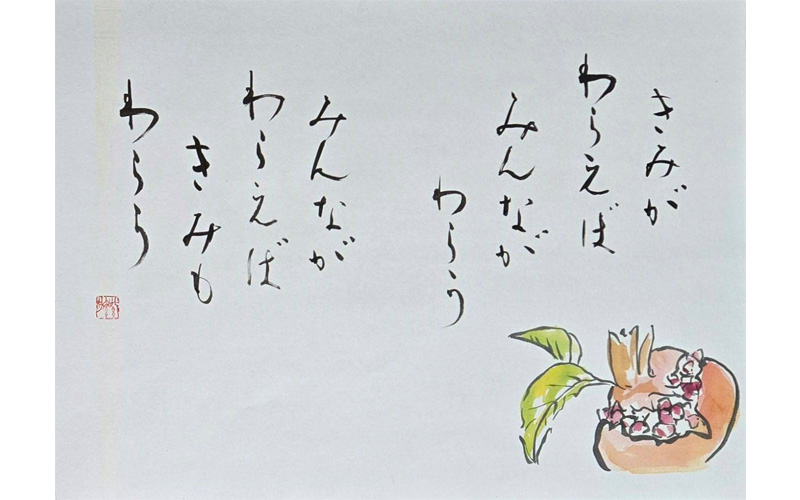 きみが
わらえば
みんなが
わらう
みんなが
わらえば
きみも
わらう